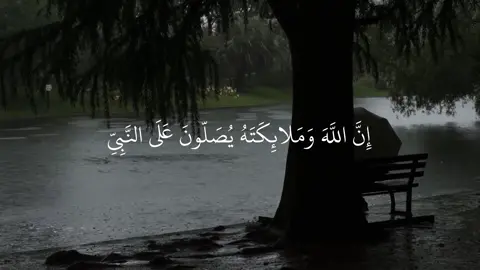 إِنَّ اللَّهَ وَمَلائِكَتَهُ يُصَلّونَ عَلَى النَّبِيِّ